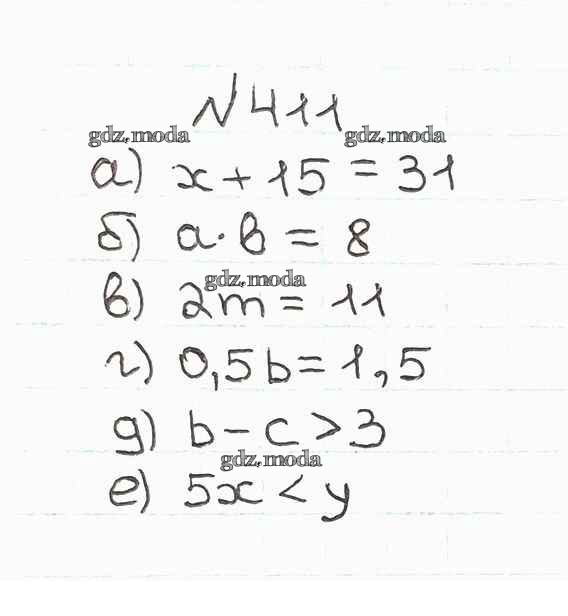 №411
gdz.moda gdz.moda
а) x + 15 = 31
б) a · в = 8
gdz.moda
в) 2m = 11
г) 0,5b = 1,5
д) b - c > 3
gdz.moda
е) 5x < y